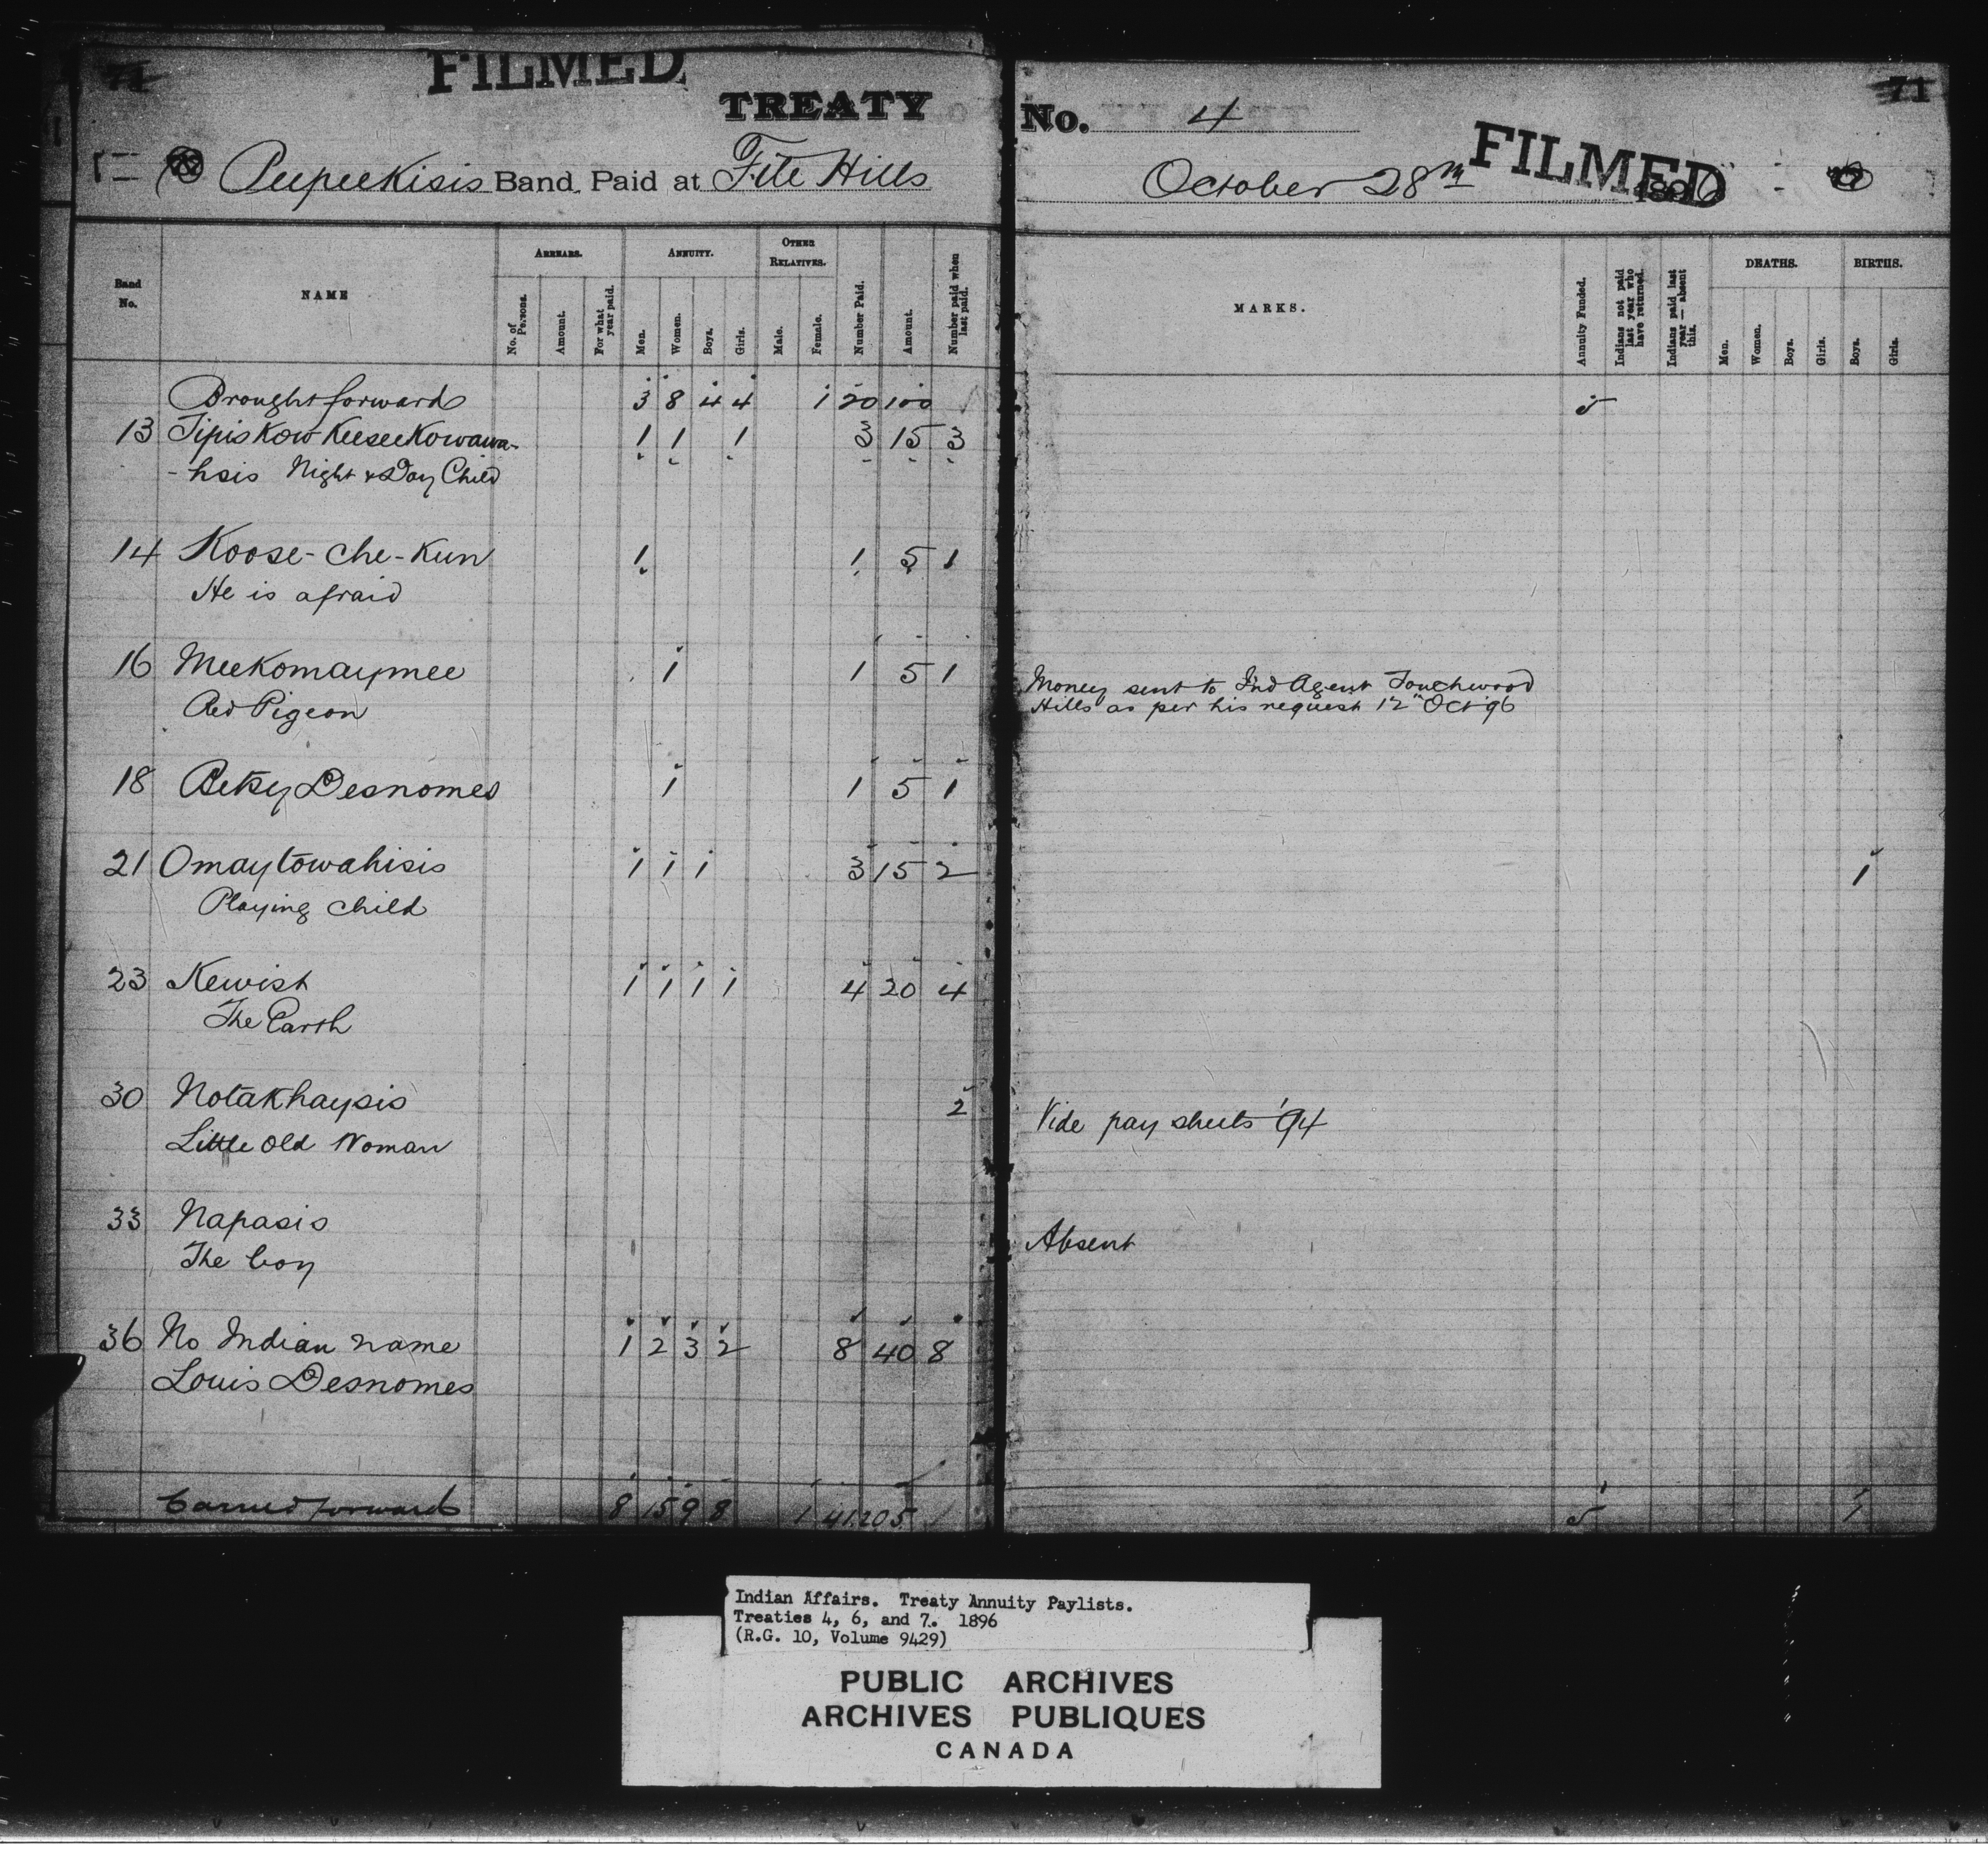 71
FILMED
TREATY
Peepeekisis Band Paid at File Hills
Band No.
NAME
ARREARS.
No. of Persons.
Amount.
For what year paid.
ANNUITY.
Men.
Women.
Boys.
Girls.
OTHER RELATIVES.
Male.
Female.
Number Paid.
Amount.
Number paid when last paid.
Brought forward 3 8 4 4 1 20 100
13 Tipiskow Keeseekowawa- 1 1 1 3 15 3
- hsis Night & Day Child
14 Koose-che-Kun 1 1 5 1
He is afraid
16 Meekomaymee 1 1 5 1
Red Pigeon
18 Betsy Desnomes 1 1 5 1
21 Omaytowahisis 1 1 1 3 15 2
Playing Child
23 Kewist 1 1 1 1 4 20 4
The Earth
30 Notakhaysis 2
Little Old Woman
33 Napasis
The boy
36 No Indian name 1 2 3 2 8 40 8
Louis Desnomes
Carried forward 8 15 9 8 1 41 205
71
No. 4
FILMED
October 28th 1896
MARKS.
Annuity Funded.
Indians not paid last year who have returned.
Indians paid last year — absent this.
DEATHS.
Men.
Women.
Boys.
Girls.
BIRTHS.
Boys.
Girls.
5
Money sent to Ind Agent Touchwood
Hills as per his request 12th Oct 96
1
Vide pay sheets '94
Absent
5 1
Indian Affairs. Treaty Annuity Paylists.
Treaties 4, 6, and 7. 1896
(R.G. 10, Volume 9429)
PUBLIC ARCHIVES
ARCHIVES PUBLIQUES
CANADA